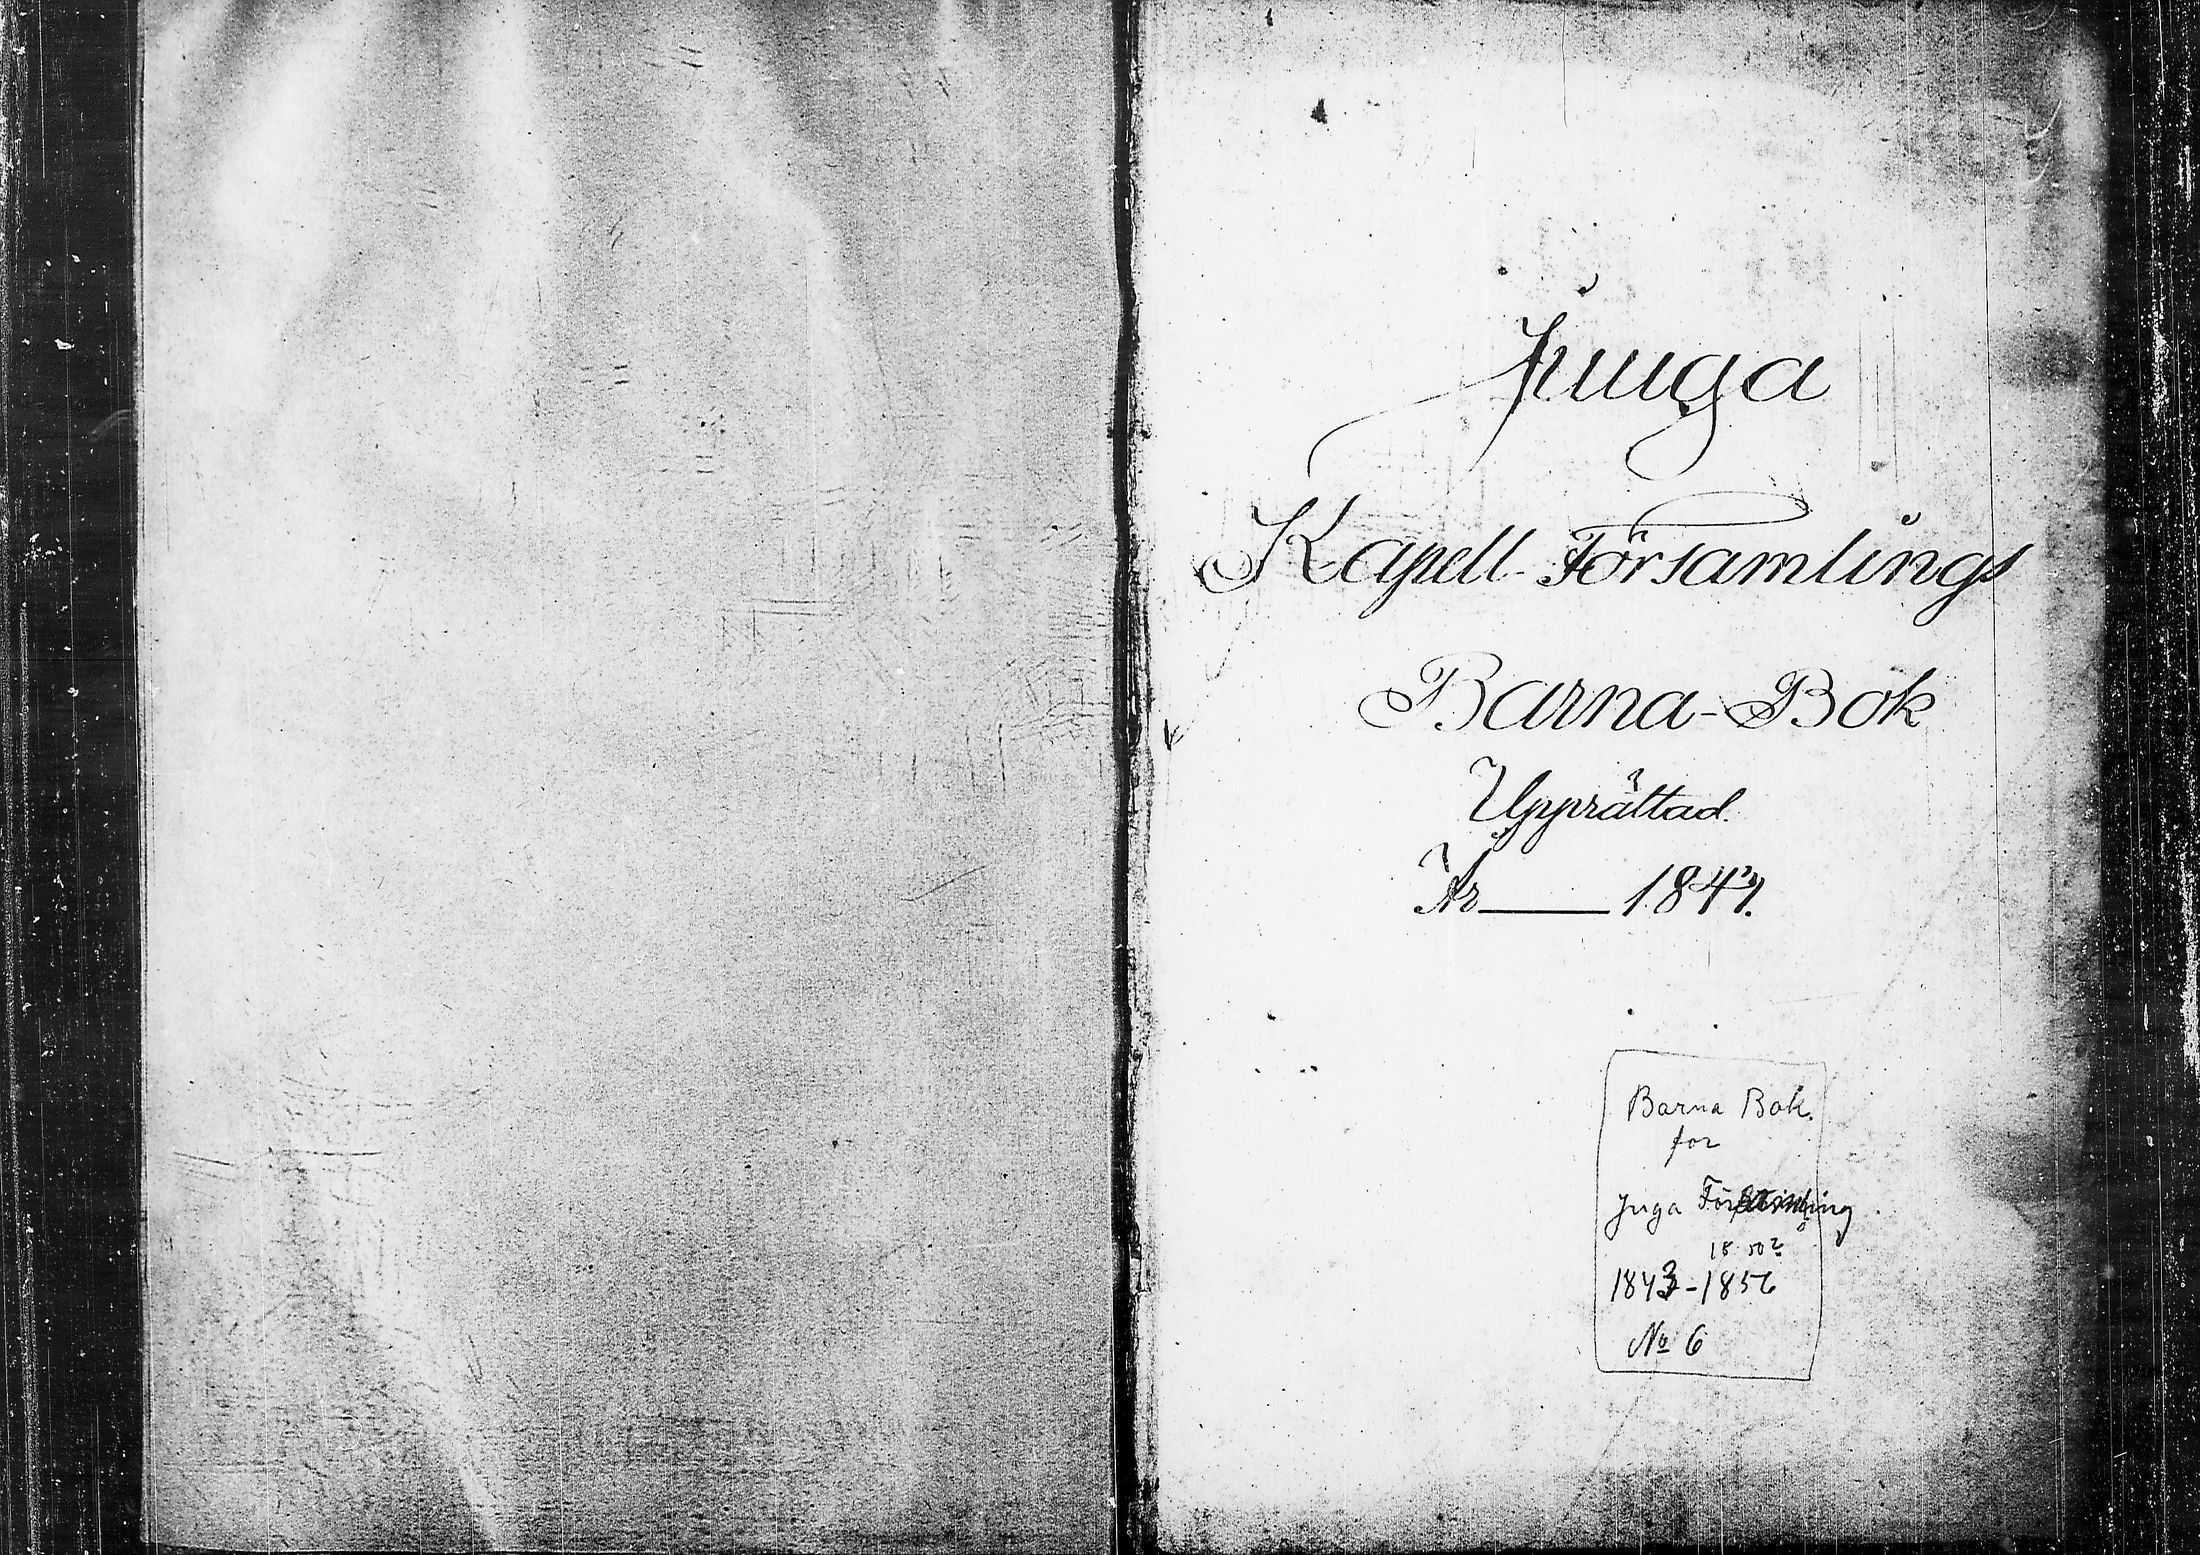 Juuga
Kapell-Församlings
Barna-Bok
Upprättad.
År 184
Barna Bok.
for
Juga Församling
1843-1856
No 6